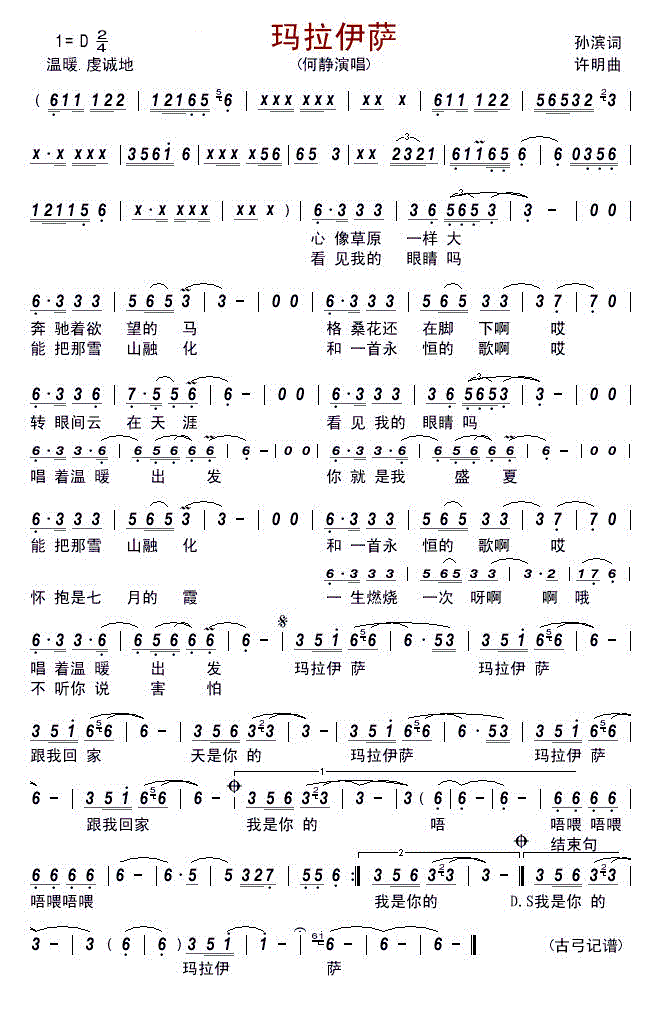 玛拉伊萨
1=D 2/4
孙滨词
温暖.虔诚地
(何静演唱)
许明曲
( 611 122 | 12165 56 | xxx xxx | xx x | 611 122 | 56532 23 |
x·x xxx | 3561 6 | xxx x56 | 65 3 | xx 2321 | 61165 6 | 6 0356 |
12115 6 | x·x xxx | xx x ) | 6·3 3 3 | 3 6 565 3 | 3 - | 0 0 |
心 像草原 一样 大
看 见我的 眼睛 吗
6·3 3 3 | 5 65 3 | 3 - | 0 0 | 6·3 3 3 | 5 65 3 3 | 3 7 | 7 0 |
奔 驰着欲 望的 马 格 桑花还 在脚 下啊 哎
能 把那雪 山融 化 和 一首永 恒的 歌啊 哎
6·3 3 6 | 7·5 5 6 | 6 - | 0 0 | 6·3 3 3 | 3 6 5653 | 3 - | 0 0 |
转 眼间云 在 天 涯 看 见我的 眼睛 吗
6·3 3·6 | 5 6 6 6 6 | 6 - | 0 0 | 6·3 3·6 | 5 6 6 6 6 | 6 - | 0 0 |
唱 着温 暖 出 发 你 就 是我 盛 夏
6·3 3 3 | 5 65 3 | 3 - | 0 0 | 6·3 3 3 | 5 65 3 3 | 3 7 | 7 0 |
能 把那雪 山融 化 和 一首永 恒的 歌啊 哎
6·3 3 3 | 5 65 3 3 | 3·2 | 17 6 |
怀 抱是七 月的 霞 一 生燃烧 一次 呀啊 啊 哦
6·3 3·6 | 5 6 6 6 6 | 6 - | 3 5 1 656 | 6·53 | 3 5 1 656 | 6 - |
唱 着温 暖 出 发 玛拉伊 萨 玛拉伊 萨
不 听你 说 害 怕
3 5 1 656 | 6 - | 3 5 6 323 | 3 - | 3 5 1 656 | 6·53 | 3 5 1 656 |
跟我回 家 天是你 的 玛拉伊萨 玛拉伊 萨
1
6 - | 3 5 1 656 | 6 - | 3 5 6 323 | 3 - | 3 ( 6 | 6 - | 6 - | 6 6 6 6 |
跟我回家 我是你 的 唔 唔喂 唔喂
结束句
2
6 6 6 6 | 6 - | 6·5 | 5 327 | 55 6 :| 3 5 6 323 | 3 - | 3 5 6 323 |
唔喂唔喂 我是你的 D.S我是你 的
3 - | 3 ( 6 | 6 ) 3 5 1 | 1 - | 61 6 - |
(古弓记谱)
玛拉伊 萨